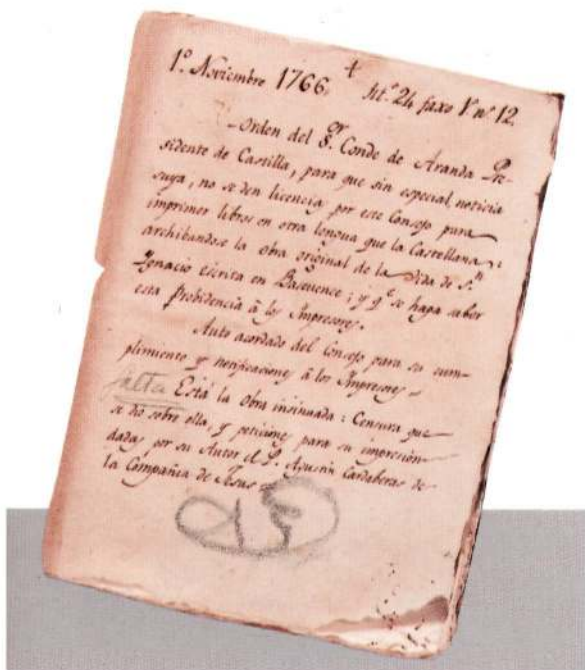 +
1.º Noviembre 1766. tit.º 24 faxo 1º nº 12.
Orden del S.or Conde de Aranda Pre-
sidente de Castilla, para que sin especial noticia
suya, no se den licencias por este Consejo para
imprimir libros en otra lengua que la Castellana:
archibandose la obra original de la Vida de S.n
Ignacio escrita en Bascuence; y q.e se haga saber
esta probidencia â los Impresores.
Auto acordado del Consejo para su cum-
plimiento y notificaciones â los Impresores
falta Está la obra insinuada: Censura que
se dio sobre ella, y peticiones para su impresion
dadas por su Autor el P. Agustin Cardaberas de
la Compañia de Jesus